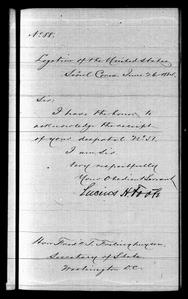 No. 88.
Legation of the United States
Söul Corea June 26 1884.
Sir:
I have the honor to
acknowledge the receipt
of your despatch No. 51.
I am Sir
Very respectfully
Your Obedient Servant
Lucius H. Foote
Hon. Fredk. T. Frelinghuysen
Secretary of State
Washington D.C.